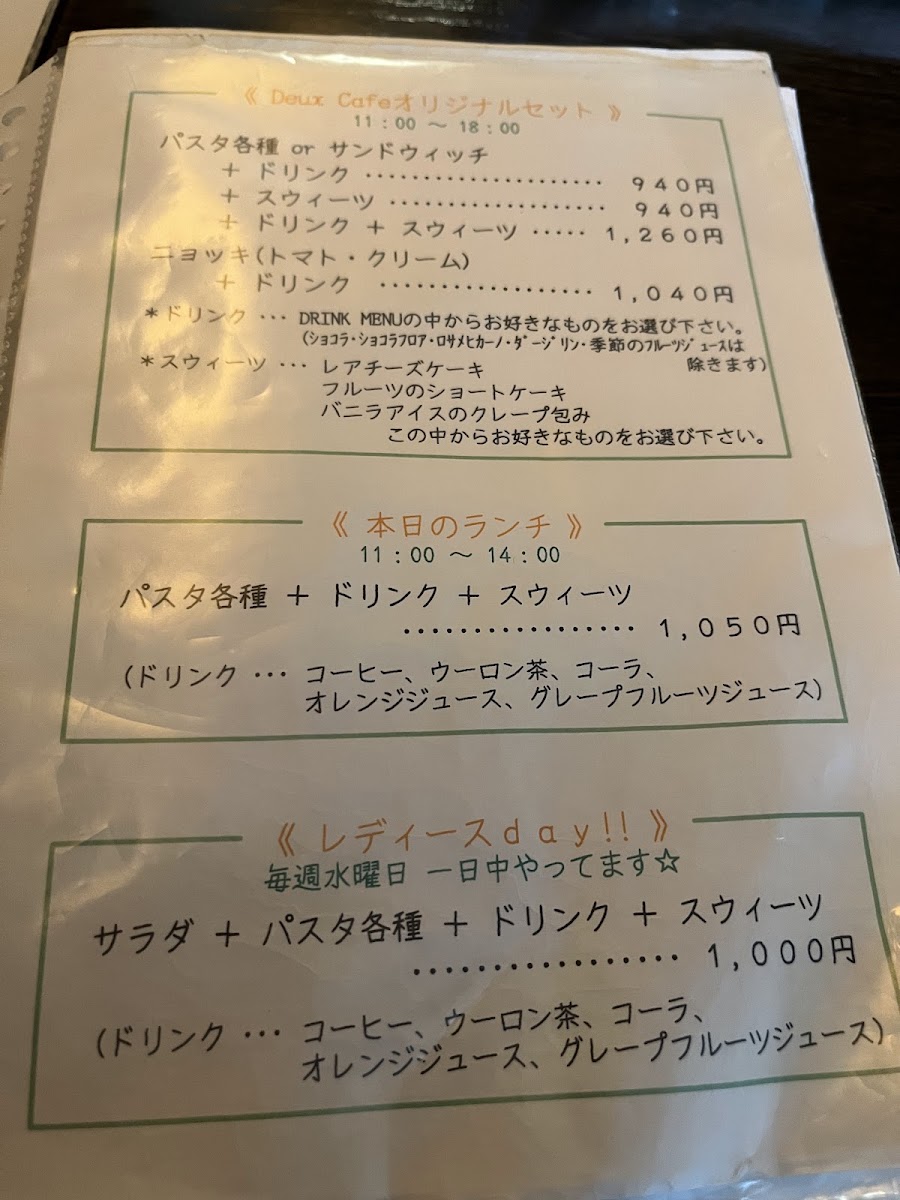 《 Deux Cafeオリジナルセット 》
11:00 ~ 18:00
パスタ各種 or サンドウィッチ
+ ドリンク ‥‥‥‥‥‥‥‥‥‥ 940円
+ スウィーツ ‥‥‥‥‥‥‥‥‥ 940円
+ ドリンク + スウィーツ ‥‥‥ 1,260円
ニョッキ(トマト・クリーム)
+ ドリンク ‥‥‥‥‥‥‥‥‥ 1,040円
*ドリンク … DRINK MENUの中からお好きなものをお選び下さい。
(ショコラ・ショコラフロア・ロサメヒカーノ・ダージリン・季節のフルーツジュースは
除きます)
*スウィーツ … レアチーズケーキ
フルーツのショートケーキ
バニラアイスのクレープ包み
この中からお好きなものをお選び下さい。
《 本日のランチ 》
11:00 ~ 14:00
パスタ各種 + ドリンク + スウィーツ
‥‥‥‥‥‥‥‥ 1,050円
(ドリンク … コーヒー、ウーロン茶、コーラ、
オレンジジュース、グレープフルーツジュース)
《 レディースday!! 》
毎週水曜日 一日中やってます☆
サラダ + パスタ各種 + ドリンク + スウィーツ
‥‥‥‥‥‥‥‥‥ 1,000円
(ドリンク … コーヒー、ウーロン茶、コーラ、
オレンジジュース、グレープフルーツジュース)